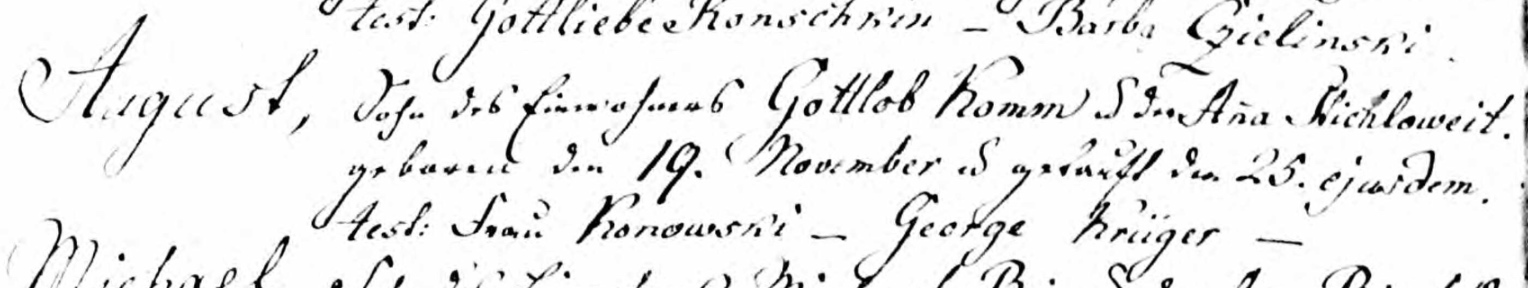 test: Gottliebe Konschkin – Barba Czielinski.
August, Sohn des Einwohners Gottlob Komm u der Aña
geboren den 19. November u getauft den 25. ejusdem.
test: Frau Konowski – George Krüger –
Michael